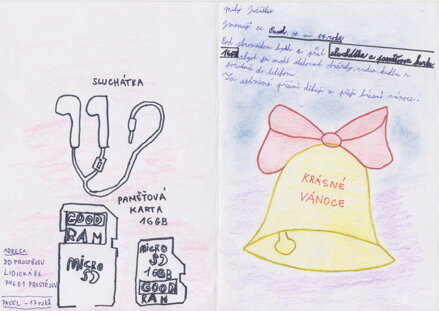 SLUCHÁTKA
PAMĚŤOVÁ
KARTA
16GB
GOOD
RAM
MICRO
SD
MICRO
SD
16GB
GOOD
RAM
ADRESA:
DD PROSTĚJOV
LIDICKÁ 86
796 01 PROSTĚJOV
PAVEL - 17 roků
Milý Ježíšku
Jmenuji se Pavel, je mi 17 roků
Pod stromeček bych si přál sluchátka a paměťovou kartu
16GB abych si mohl stahovat obrázky, videa, hudbu a
do telefonu.
Za splnění přání děkuji a přeji krásné vánoce.
KRÁSNÉ
VÁNOCE